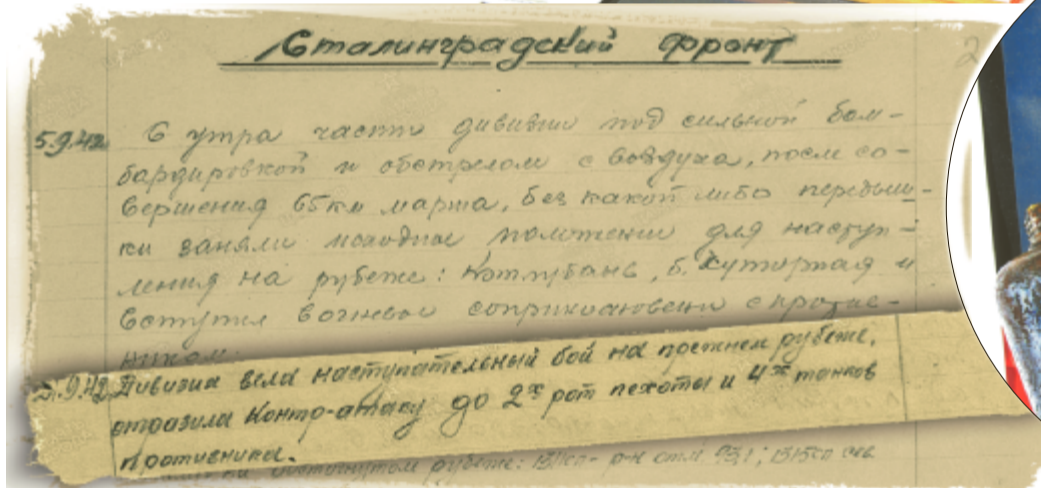 Сталинградский фронт
2
5.9.42 С утра части дивизии под сильной бом-
бардировкой и обстрелом с воздуха, после со-
вершения 65 км марша, без какой либо передыш-
ки заняли исходное положение для наступ-
ления на рубеже: Котлубань, б. Хуторная и
вступили в огневое соприкосновение с против-
ником.
9.42 Дивизия вела наступательный бой на прежнем рубеже,
отразила контр-атаку до 2х рот пехоты и 4х танков
противника.
достигнутом рубеже: